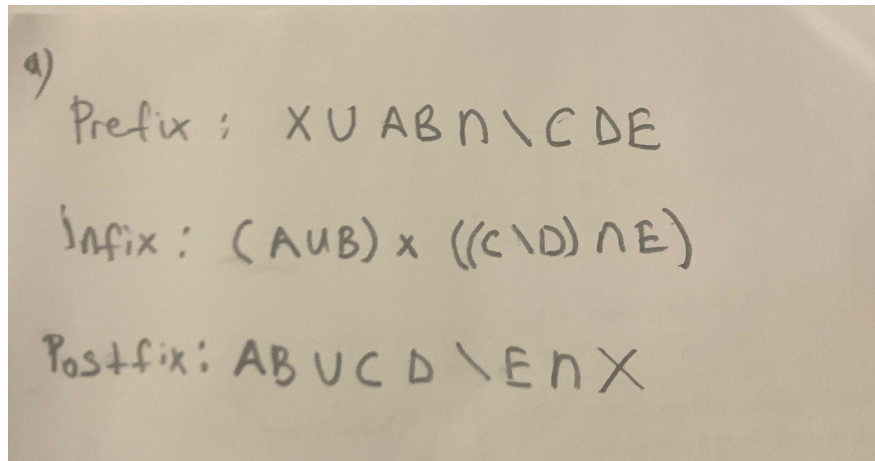 a)
Prefix : X U A B ∩ \ C D E
Infix : (A U B) x ((C \ D) ∩ E)
Postfix : A B U C D \ E ∩ X